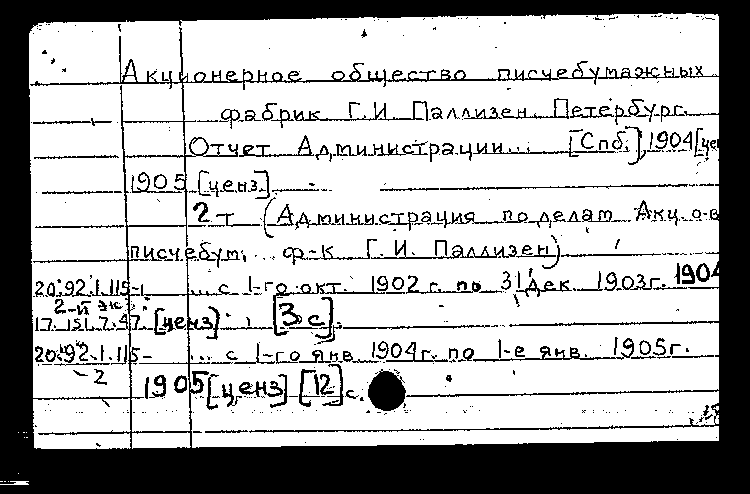 Акционерное общество писчебумажных
фабрик Г.И. Паллизен. Петербург.
Отчет Администрации... [Спб.], 1904 [цен
1905 [ценз.]
2 т (Администрация по делам Акц. о-в
писчебум. ф-к Г.И. Паллизен)
20.92.1.115-1 ... с 1-го окт. 1902 г. по 31 дек. 1903г. 1904
2-й экз.:
17.151.7.47. [ценз], [3 с].
20.92.1.115- ... с 1-го янв. 1904г. по 1-е янв. 1905г.
2 1905 [ценз] [12] с.